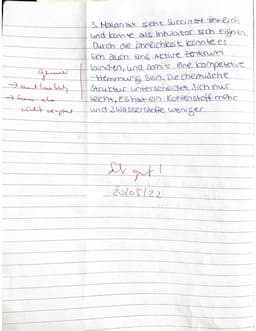 3. Malonat sieht Succinat ähnlich
und könnte als Inhibitor sich eignen.
Durch die Ähnlichkeit könnte es
sich auch ans Aktive Zentrum
binden, und somit eine kompetitive
Hemmung sein. Die chemische
Struktur unterscheidet sich nur
leicht, es hat ein Kohlenstoff mehr
und 2 Wasserstoffe weniger.
genau
nicht
gut!
20/05/22